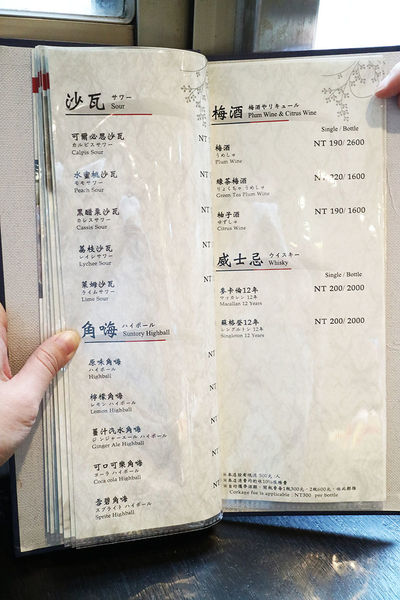 沙瓦 サワー
Sour
可爾必思沙瓦 NT
カルピスサワー
Calpis Sour
水蜜桃沙瓦 NT
モモサワー
Peach Sour
黑醋栗沙瓦 NT
カシスサワー
Cassis Sour
荔枝沙瓦 NT
レイシサワー
Lychee Sour
萊姆沙瓦 NT
ライムサワー
Lime Sour
角嗨 ハイボール
Suntory Highball
原味角嗨 NT
ハイボール
Highball
檸檬角嗨 NT
レモン ハイボール
Lemon Highball
薑汁汽水角嗨 NT
ジンジャーエール ハイボール
Ginger Ale Highball
可口可樂角嗨 NT
コーラ ハイボール
Coca cola Highball
雪碧角嗨 NT
スプライト ハイボール
Sprite Highball
梅酒 梅酒やリキュール
Plum Wine & Citrus Wine
Single / Bottle
梅酒 NT 190/ 2600
うめしゅ
Plum Wine
綠茶梅酒 NT 220/ 1600
りょくちゃ うめしゅ
Green Tea Plum Wine
柚子酒 NT 190/ 1600
ゆずしゅ
Citrus Wine
威士忌 ウイスキー
Whisky
Single / Bottle
麥卡倫12年 NT 200/ 2000
マッカラン 12年
Macallan 12 Years
蘇格登12年 NT 200/ 2000
シングルトン 12年
Singleton 12 Years
※本店設有低消 300元 /人
※本店消費均酌收10%服務費
Corkage fee is applicable : NT300 per bottle